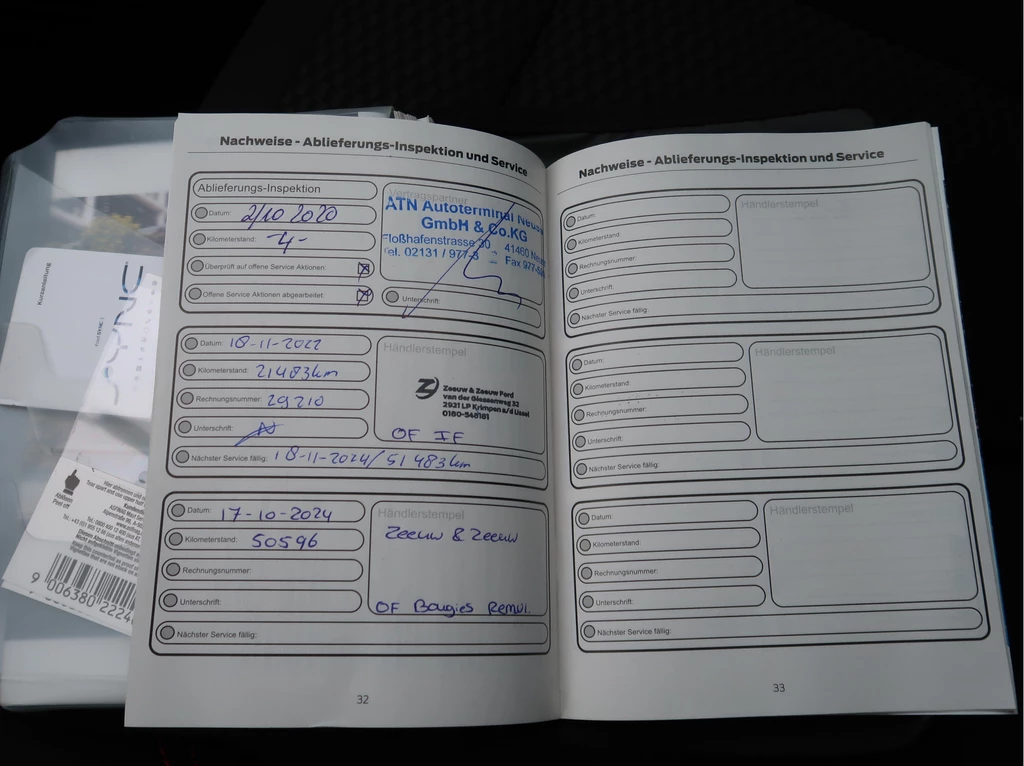 Nachweise - Ablieferungs-Inspektion und Service
Ablieferungs-Inspektion
Datum: 2/10 2020
Kilometerstand: 4-
Überprüft auf offene Service Aktionen:
Offene Service Aktionen abgearbeitet:
Vertragspartner
ATN Autoterminal Neuss
GmbH & Co.KG
Floßhafenstrasse 30 – 41460 Neuss
Tel. 02131 / 977-3 – Fax 977-
Unterschrift:
Datum: 18-11-2022
Kilometerstand: 21483km
Rechnungsnummer: 29210
Unterschrift:
Nächster Service fällig: 18-11-2024/51483km
Händlerstempel
Zeeuw & Zeeuw Ford
van der Giessenweg 32
2921 LP Krimpen a/d IJssel
0180-548181
OF IF
Datum: 17-10-2024
Kilometerstand: 50596
Rechnungsnummer:
Unterschrift:
Nächster Service fällig:
Händlerstempel
Zeeuw & Zeeuw
OF Bougies Remvl.
32
Nachweise - Ablieferungs-Inspektion und Service
Datum:
Kilometerstand:
Rechnungsnummer:
Unterschrift:
Nächster Service fällig:
Händlerstempel
Datum:
Kilometerstand:
Rechnungsnummer:
Unterschrift:
Nächster Service fällig:
Händlerstempel
Datum:
Kilometerstand:
Rechnungsnummer:
Unterschrift:
Nächster Service fällig:
Händlerstempel
33
Kurzanleitung
SYNC
Abklappen
Peel off
9 006380 2224